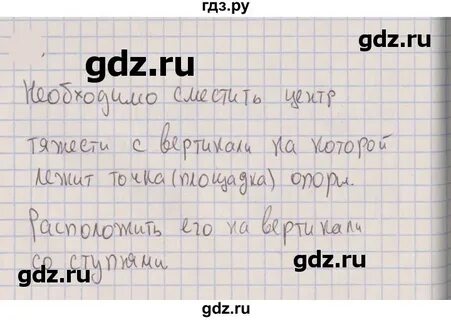 гдз.ру
gdz.ru
gdz.ru
Необходимо сместить центр
тяжести с вертикали на которой
лежит точка (площадка) опоры.
gdz.ru
Расположить его на вертикали
со ступнями.
gdz.ru
gdz.ru